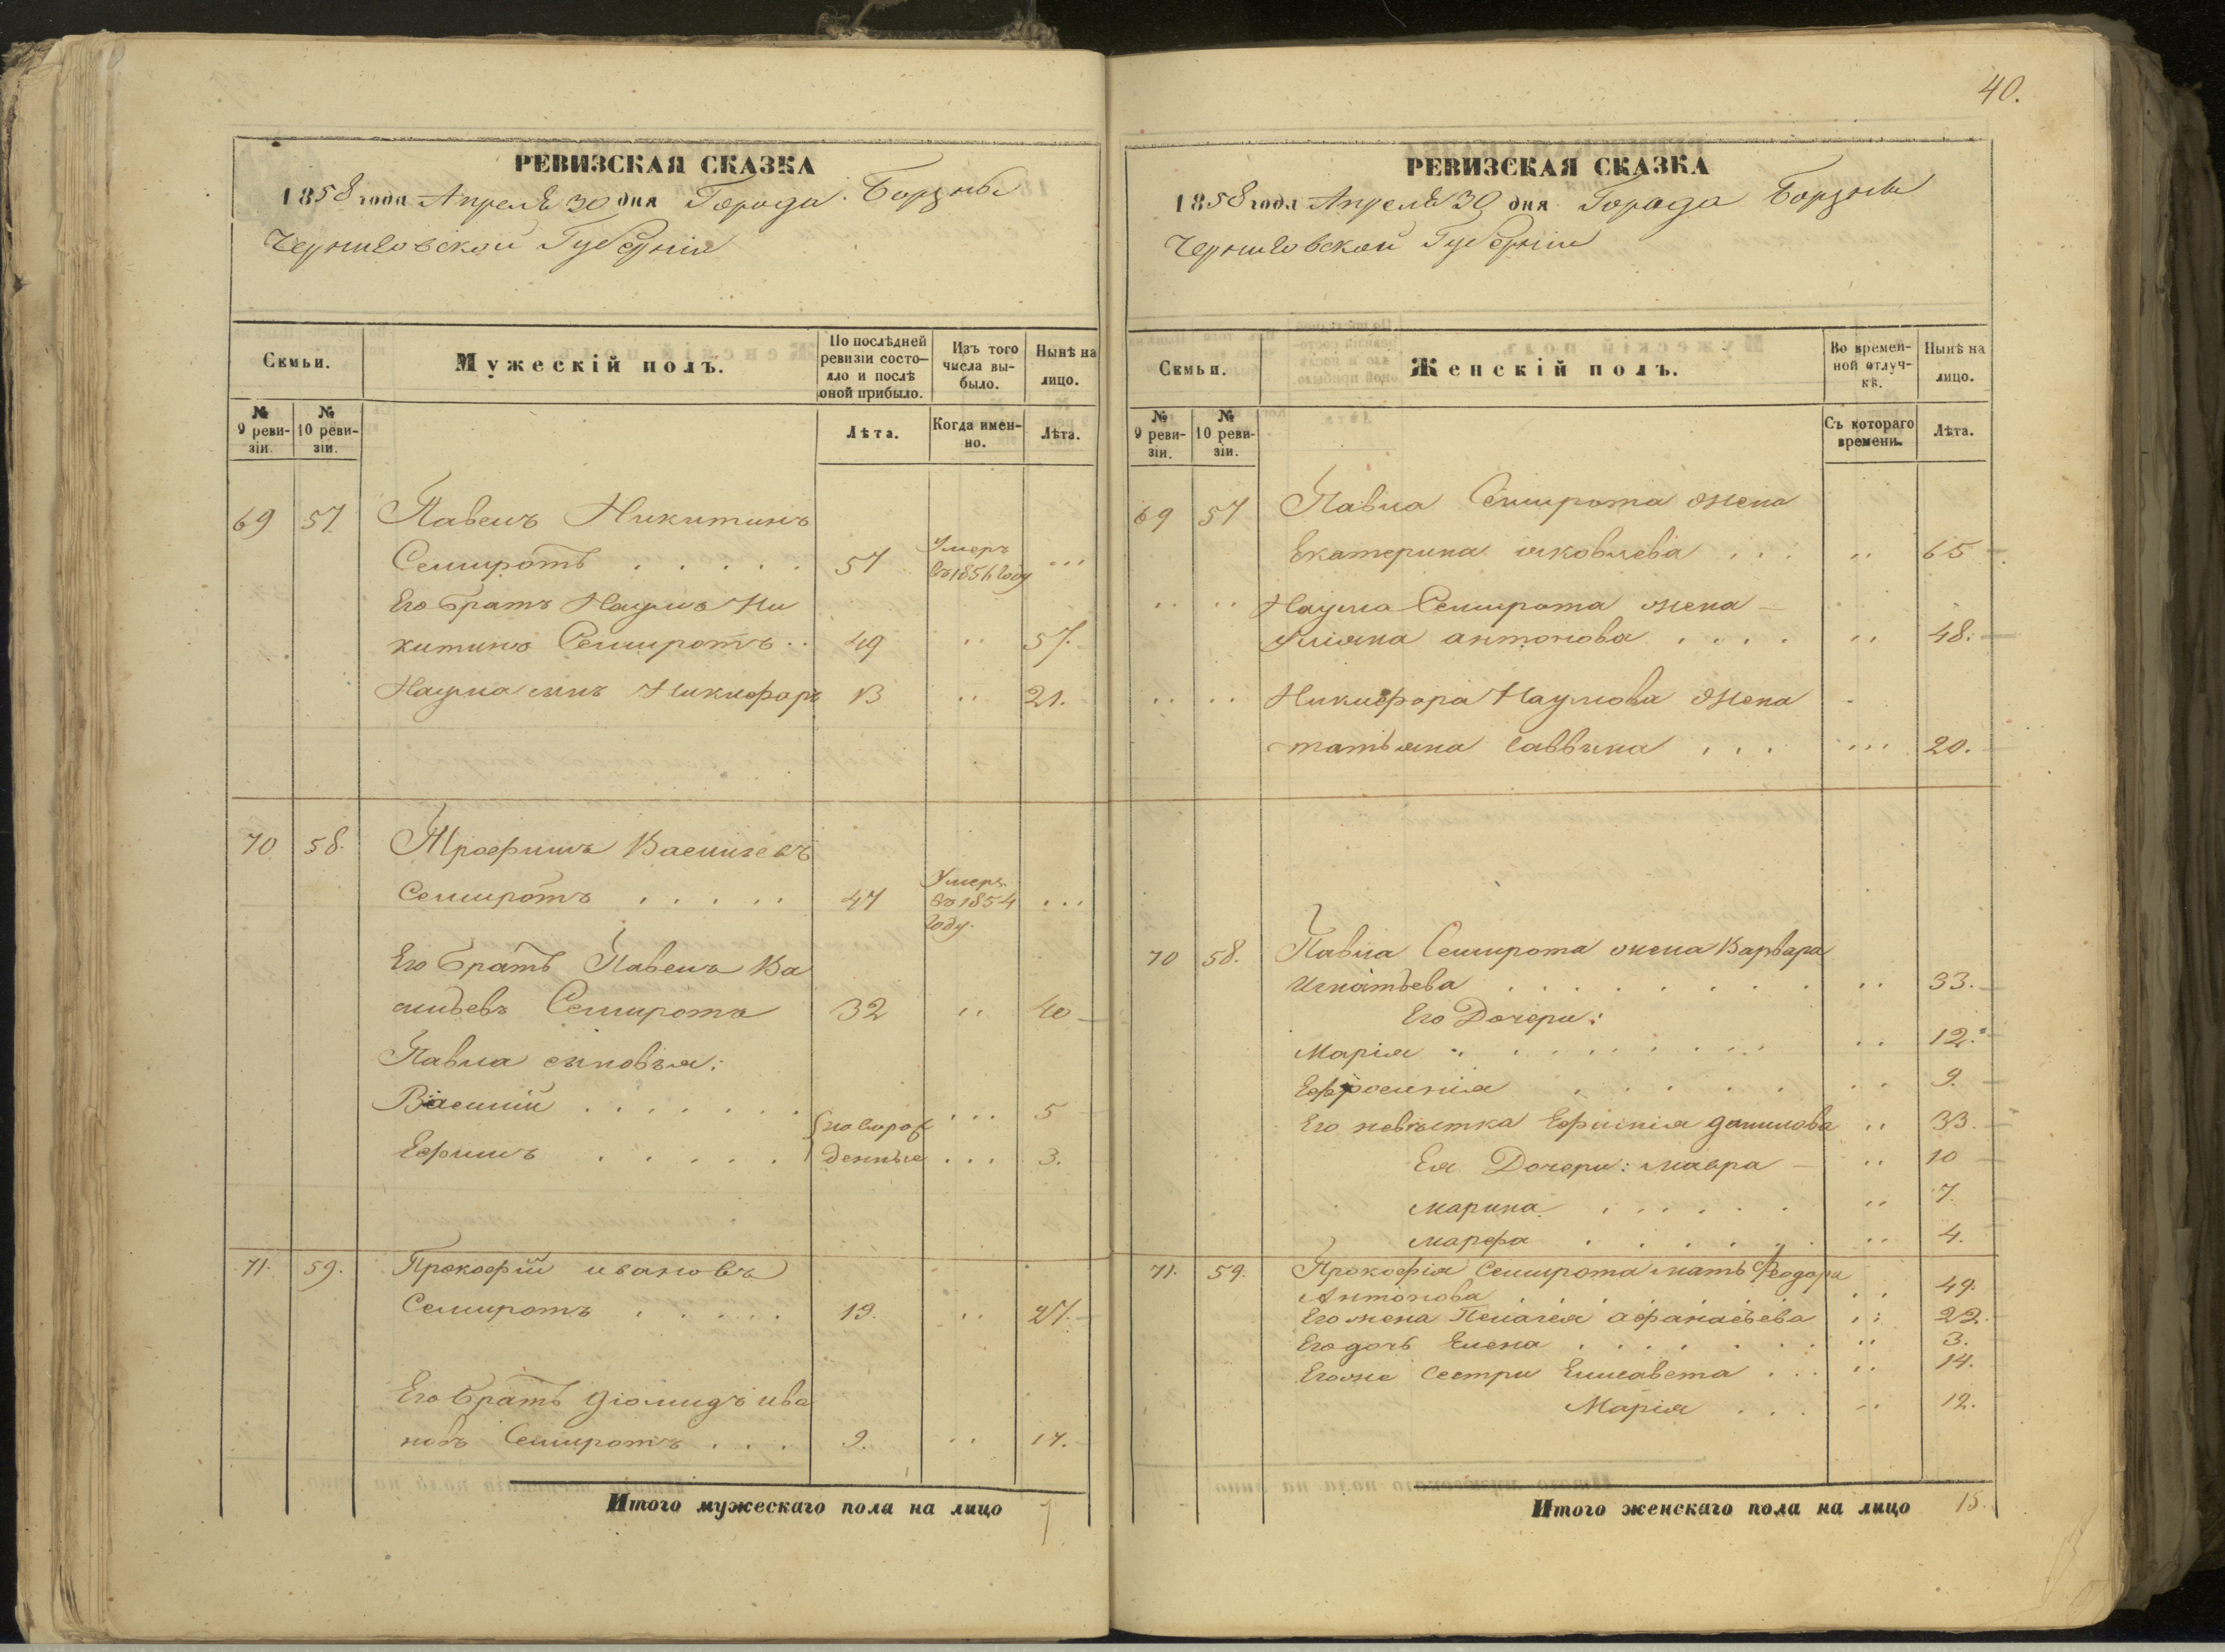 РЕВИЗСКАЯ СКАЗКА
1858 года Апреля 30 дня Города Борзны
Черниговской Губерніи
Семьи.
Мужескій полъ.
По послѣдней ревизіи состояло и послѣ оной прибыло.
Изъ того числа выбыло.
Нынѣ на лицо.
№ 9 ревизіи.
№ 10 ревизіи.
Лѣта.
Когда именно.
Лѣта.
69 57 Павелъ Никитинъ
Семиротъ . . . . . 57 Умеръ въ 1856 году ...
Его братъ Наумъ Ни
китинъ Семиротъ .. 49 " 57.
Наума сынъ Никифоръ 13 " 21.
70 58. Трофимъ Васильевъ
Семиротъ . . . . . 47 Умеръ въ 1854 году. ...
Его братъ Павелъ Ва
сильевъ Семиротъ 32 " 40
Павла сыновья:
Василий . . . . . . . новорож ... 5
Ефимъ . . . . . денные ... 3.
71. 59. Прокофій ивановъ
Семиротъ . . . . . 19. " 27.
Его братъ Діомидъ ива
новъ Семиротъ . . . 9. " 17.
Итого мужескаго пола на лицо 7
40.
РЕВИЗСКАЯ СКАЗКА
1858 года Апреля 30 дня Города Борзны
Черниговской Губерніи
Семьи.
Женскій полъ.
Во временной отлучкѣ.
Нынѣ на лицо.
№ 9 ревизіи.
№ 10 ревизіи.
Съ котораго времени.
Лѣта.
69 57 Павла Семирота жена
Екатерина яковлева . . . " 65
Наума Семирота жена
Уліяна антонова . . . . " 48.
Никифора Наумова жена
татьяна саввина . . . ... 20.
70 58. Павла Семирота жена Варвара
Игнатьева . . . . . . . . " 33.
Его Дочери:
Марія . . . . . . . . " 12.
Ефросинія . . . . . " 9.
Его невѣстка Ефимія данилова " 33.
Ея Дочери: мавра " 10
марина . . . . . . " 7.
марфа . . . . . . " 4.
71. 59. Прокофія Семирота мать Феодора
Антонова . . . . . . " 49.
Его жена Пелагея афанасьева " 22.
Его дочь Елена . . . . . . " 3.
Его же сестри Елисавета . . . " 14.
Марія . . . " 12.
Итого женскаго пола на лицо 15.